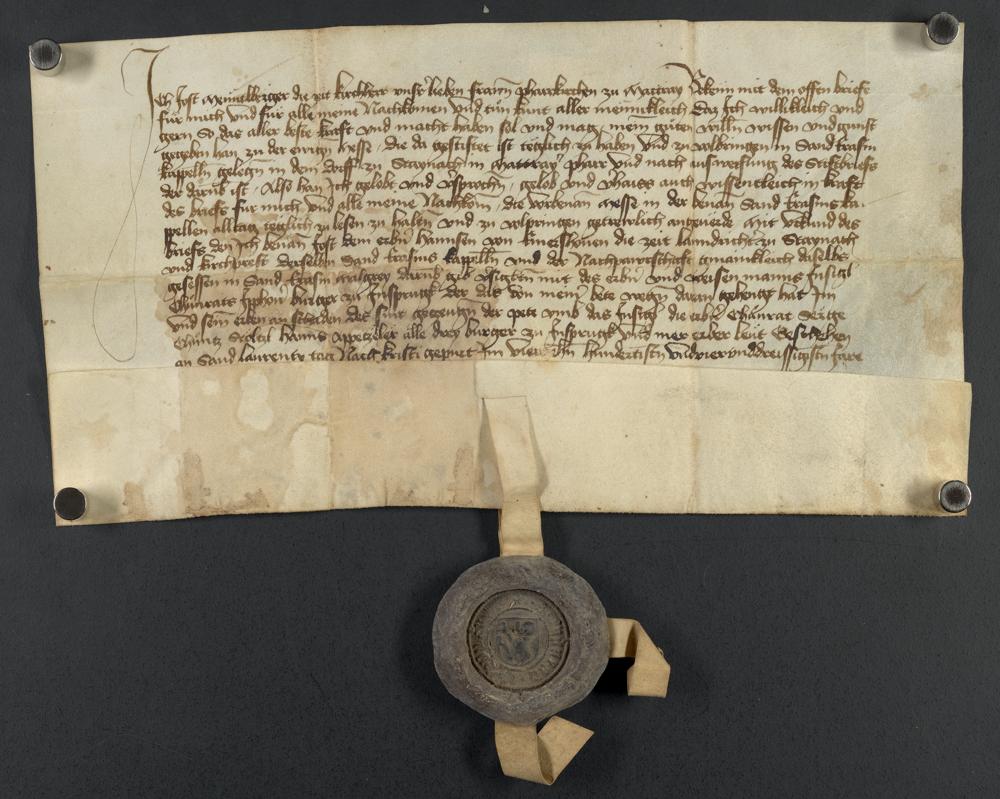 Ich Jost Meimelberger die zeit kirchherr unser lieben frawn pharrkirchen zu Mattray Bekenn mit dem offen briefe
für mich und für alle meine Nachkomen und tun kunt aller mennikleich Daz Ich willikleich und
gern So das aller beste kraft und macht haben sol und mag mein guten willn wissen und gunst
gegeben han zu der ewign Messe, die da gestiftet ist teglich zu haben und zu volbringen in Sand Erasm
kappelln gelegn in dem dorff zu Staynach in Mattrayer pharr und nach ausweysung des Stiftbriefs
der darüb ist, Also han Ich gelobt und vsprochn, gelob und vhaiss auch wissentleich in kraft
des briefs für mich und alle meine Nachkomn, die vorbenan Messe in der benan Sand Erasms ka-
ppellen alltag teglich zu lesen zu haltn und zu volpringen getrewlich angeuerde Mit urkund des
briefs den Ich benan Jost dem erbn Hannsen von die zeit lanndrichter zu Staynach
und kirchprest derselben Sand Erasms kappelln und der Nachpawrschaft gmainkleich daselbs
gesessen in Sand Erasm darüb gib vsigltn mit des erbn und weisen manns Insigl
Chunrats burger zu Insprugk Der das von meinr bete wegn daran gehengt hat Im
und sein erben an schaden des sint getzeugn der pete umb das Insigl die erbn Chunrat
Chuntz Hanns Appetzeller alle drey burger zu Insprugk und mer erber leut Beschehen
an Sand laurentzn tag Nach kristi gepurt Im vierzehn hundertistn und vierunddreissigistn Jare